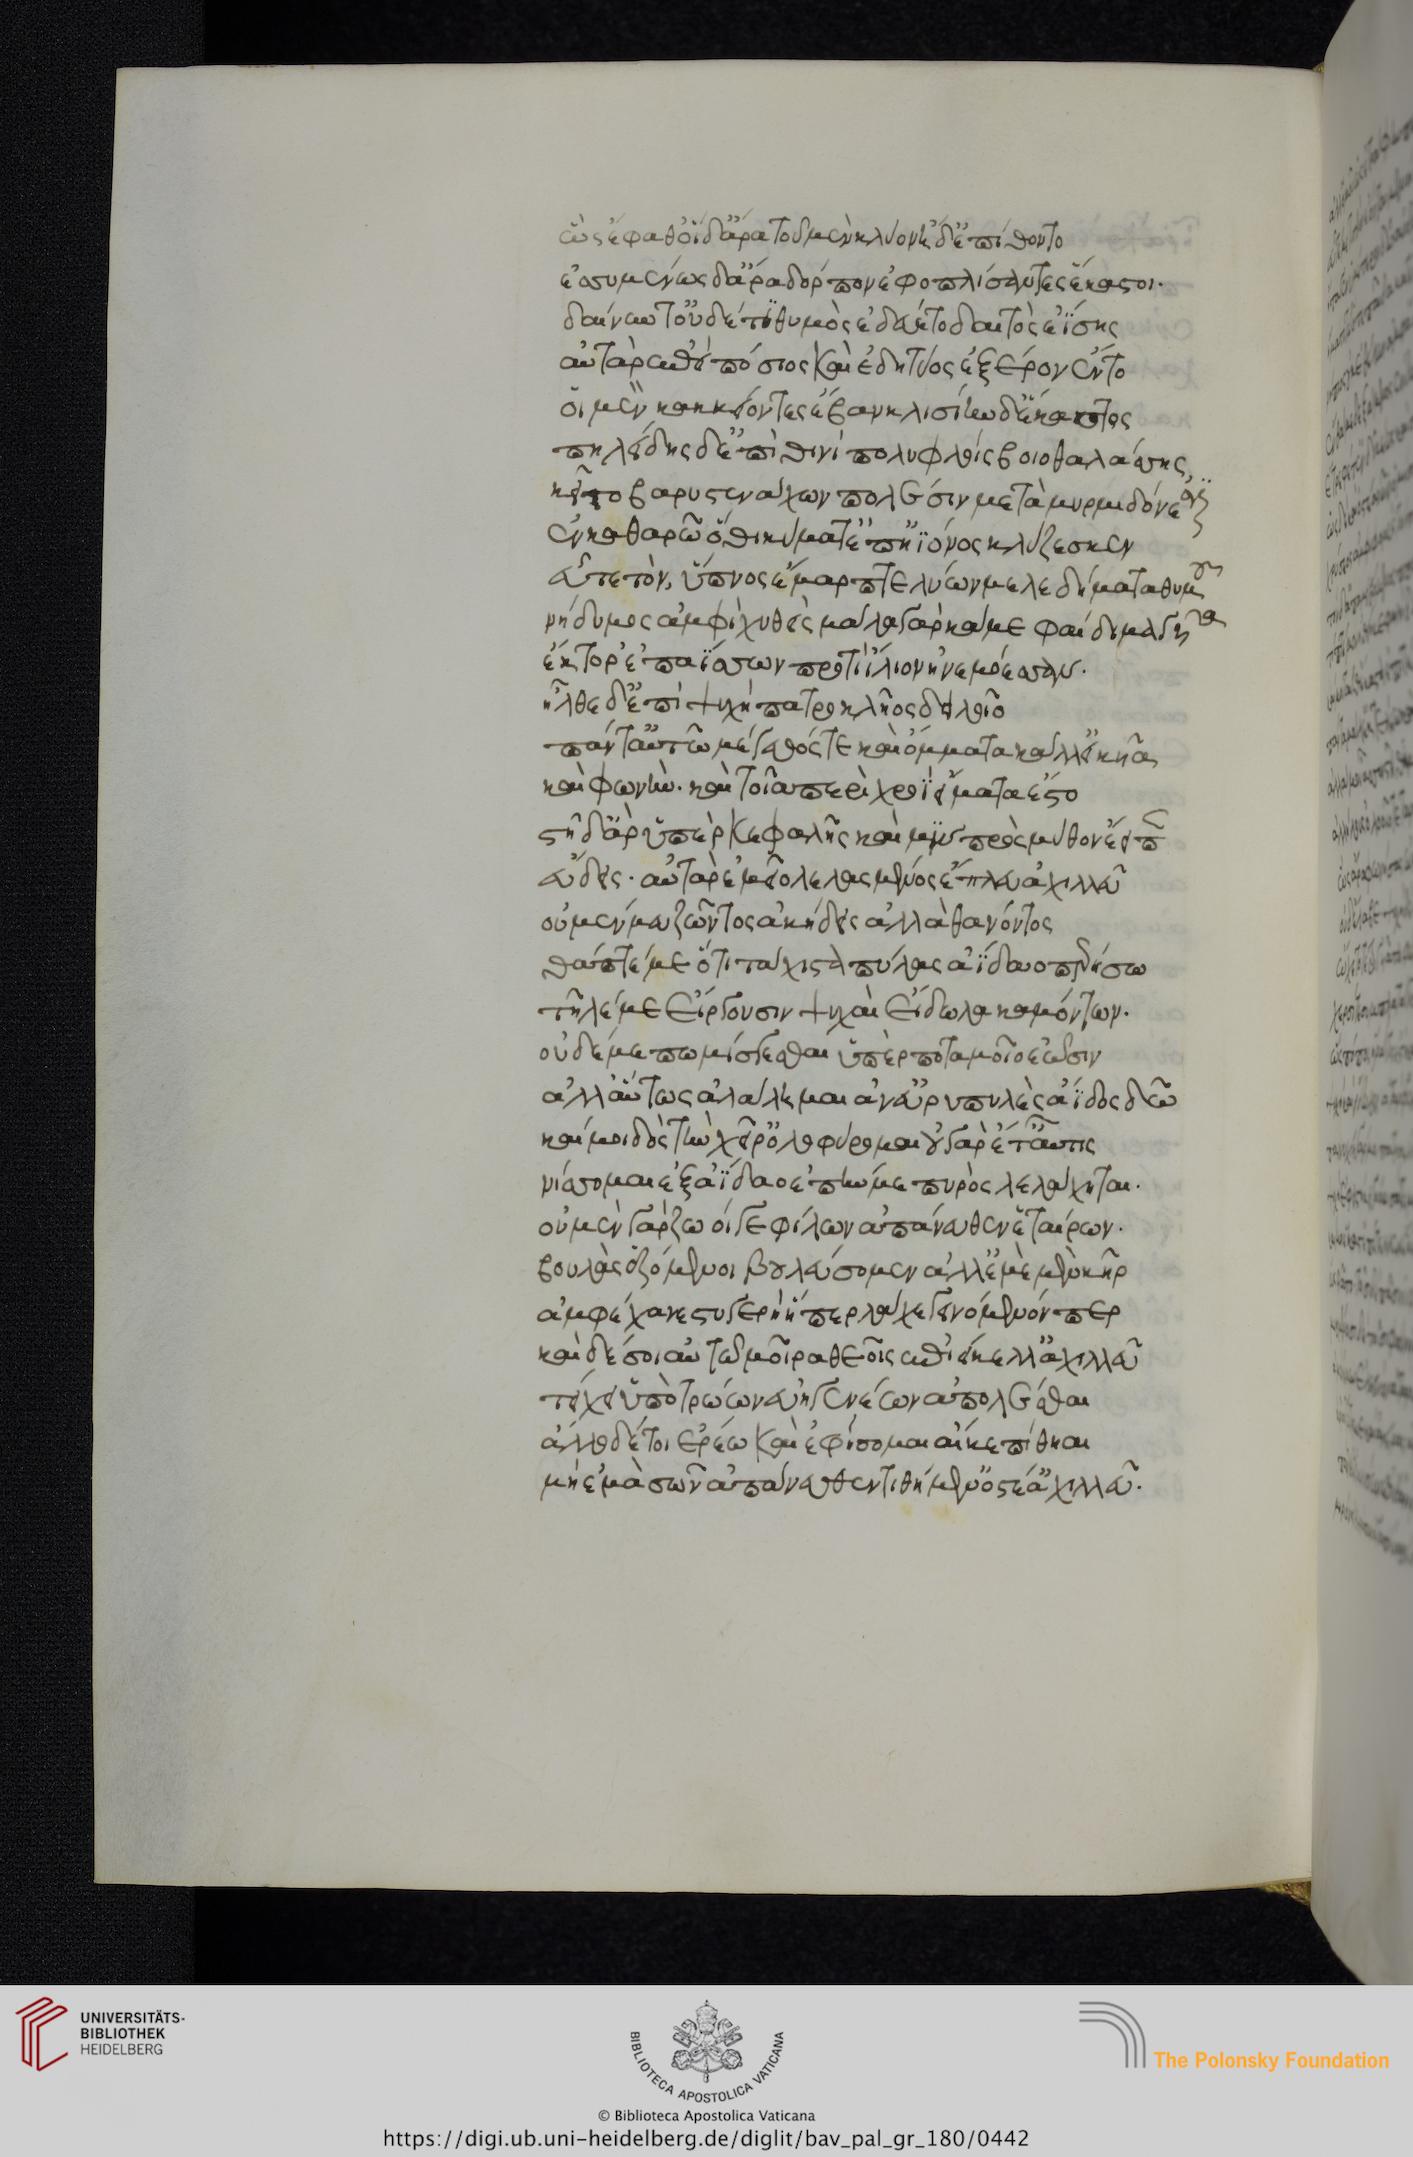 ὣς ἔφαθ οἳ δ ἄρα τοῦ μὲν κλύον ἠδ ἐπίθοντο
ἐσσυμένως δ ἄρα δόρπον ἐφοπλίσαντες ἕκαστοι.
δαίνυντ οὐδέ τι θυμὸς ἐδεύετο δαιτὸς ἐΐσης
αὐτὰρ ἐπεὶ πόσιος καὶ ἐδητύος ἐξ ἔρον ἕντο
οἱ μὲν κακκείοντες ἔβαν κλισίην δὲ ἕκαστος
πηλείδης δ ἐπὶ θινὶ πολυφλοίσβοιο θαλάσσης,
κεῖτο βαρυστενάχων πολέσιν μετὰ μυρμιδόνεσσιν
ἐν καθαρῷ ὅθι κύματ ἐπ ἠϊόνος κλύζεσκεν
εὖτε τὸν, ὕπνος ἔμαρπτε λύων μελεδήματα θυμοῦ
νήδυμος ἀμφιχυθεὶς μάλα γὰρ κάμε φαίδιμα γυῖα
ἕκτορ ἐπαΐσσων προτὶ ἴλιον ἠνεμόεσσαν.
ἦλθε δ ἐπὶ ψυχὴ πατροκλῆος δειλοῖο
πάντ αὐτῷ μέγεθός τε καὶ ὄμματα κάλλ εἰκυῖα
καὶ φωνήν. καὶ τοῖα περὶ χροῒ εἵματα ἕστο
στῆ δ ἄρ ὑπὲρ κεφαλῆς καί μιν πρὸς μῦθον ἔειπεν
εὕδεις. αὐτὰρ ἐμεῖο λελασμένος ἔπλευ ἀχιλλεῦ
οὐ μέν μευ ζῶντος ἀκήδεις ἀλλὰ θανόντος
θάπτέ με ὅτι τάχιστα πύλας ἀΐδαο περήσω
τῆλέ με εἴργουσιν ψυχαὶ εἴδωλα καμόντων.
οὐδέ με πω μίσγεσθαι ὑπὲρ ποταμοῖο ἐῶσιν
ἀλλ αὔτως ἀλάλημαι ἀν εὐρυπυλὲς ἄϊδος δῶ
καί μοι δὸς τὴν χεῖρ ὀλοφύρομαι οὐ γὰρ ἔτ αὖτις
νίσσομαι ἐξ ἀΐδαο ἐπήν με πυρὸς λελάχητε.
οὐ μὲν γὰρ ζωοί γε φίλων ἀπάνευθεν ἑταίρων.
βουλὰς ἑζόμενοι βουλεύσομεν ἀλλ ἐμὲ μὲν κὴρ
ἀμφέχανε στυγερὴ ἥπερ λάχε γεινόμενόν περ
καὶ δέ σοι αὐτῷ μοῖρα θεοῖς ἐπιείκελ ἀχιλλεῦ
τείχει ὑπὸ τρώων εὐηγενέων ἀπολέσθαι
ἄλλο δέ τοι ἐρέω καὶ ἐφήσομαι αἴ κε πίθηαι
μὴ ἐμὰ σῶν ἀπάνευθεν τιθήμεναι ὀστέ ἀχιλλεῦ.
UNIVERSITÄTS-
BIBLIOTHEK
HEIDELBERG
BIBLIOTECA APOSTOLICA VATICANA
The Polonsky Foundation
© Biblioteca Apostolica Vaticana
https://digi.ub.uni-heidelberg.de/diglit/bav_pal_gr_180/0442